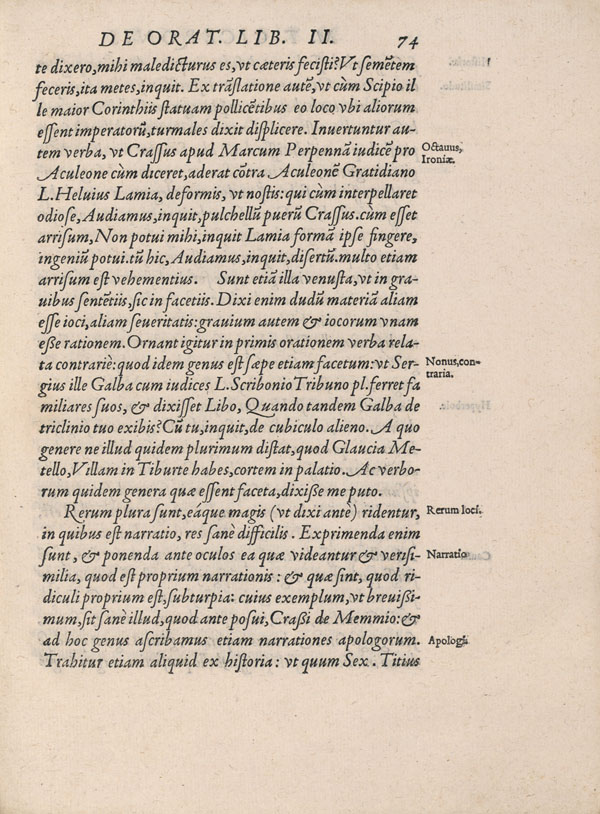 DE ORAT. LIB. II. 74
te dixero,mihi maledicturus es,vt cæteris fecisti?Vt semẽtem
feceris,ita metes,inquit. Ex trãslatione autẽ,vt cùm Scipio il
le maior Corinthiis statuam pollicẽtibus eo loco vbi aliorum
essent imperatorũ,turmales dixit displicere. Inuertuntur au-
tem verba, vt Crassus apud Marcum Perpennã iudicẽ pro
Octauus,
Ironiæ.
Aculeone cùm diceret,aderat cõtra Aculeonẽ Gratidiano
L.Heluius Lamia, deformis, vt nostis: qui cùm interpellaret
odiose, Audiamus,inquit,pulchellũ puerũ Crassus.cùm esset
arrisum,Non potui mihi,inquit Lamia formã ipse fingere,
ingeniũ potui.tũ hic, Audiamus,inquit,disertũ.multo etiam
arrisum est vehementius. Sunt etiã illa venusta,vt in gra-
uibus sentẽtiis,sic in facetiis. Dixi enim dudũ materiã aliam
esse ioci,aliam seueritatis: grauium autem & iocorum vnam
esse rationem. Ornant igitur in primis orationem verba rela-
ta contrariè: quod idem genus est sæpe etiam facetum: vt Ser-
Nonus,con-
traria.
gius ille Galba cum iudices L.Scribonio Tribuno pl.ferret fa
miliares suos, & dixisset Libo, Quando tandem Galba de
triclinio tuo exibis? Cũ tu,inquit,de cubiculo alieno. A quo
genere ne illud quidem plurimum distat,quod Glaucia Me-
tello,Villam in Tiburte habes,cortem in palatio. Ac verbo-
rum quidem genera quæ essent faceta,dixisse me puto.
Rerum plura sunt,eáque magis (vt dixi antè) ridentur,
Rerum loci.
in quibus est narratio, res sanè difficilis. Exprimenda enim
sunt, & ponenda ante oculos ea quæ videantur & verisi-
Narratio
milia, quod est proprium narrationis: & quæ sint, quod ri-
diculi proprium est,subturpia: cuius exemplum,vt breuissi-
mum,sit sanè illud,quod ante posui,Crassi de Memmio:&
ad hoc genus ascribamus etiam narrationes apologorum.
Apologi
Trahitur etiam aliquid ex historia: vt quum Sex. Titius